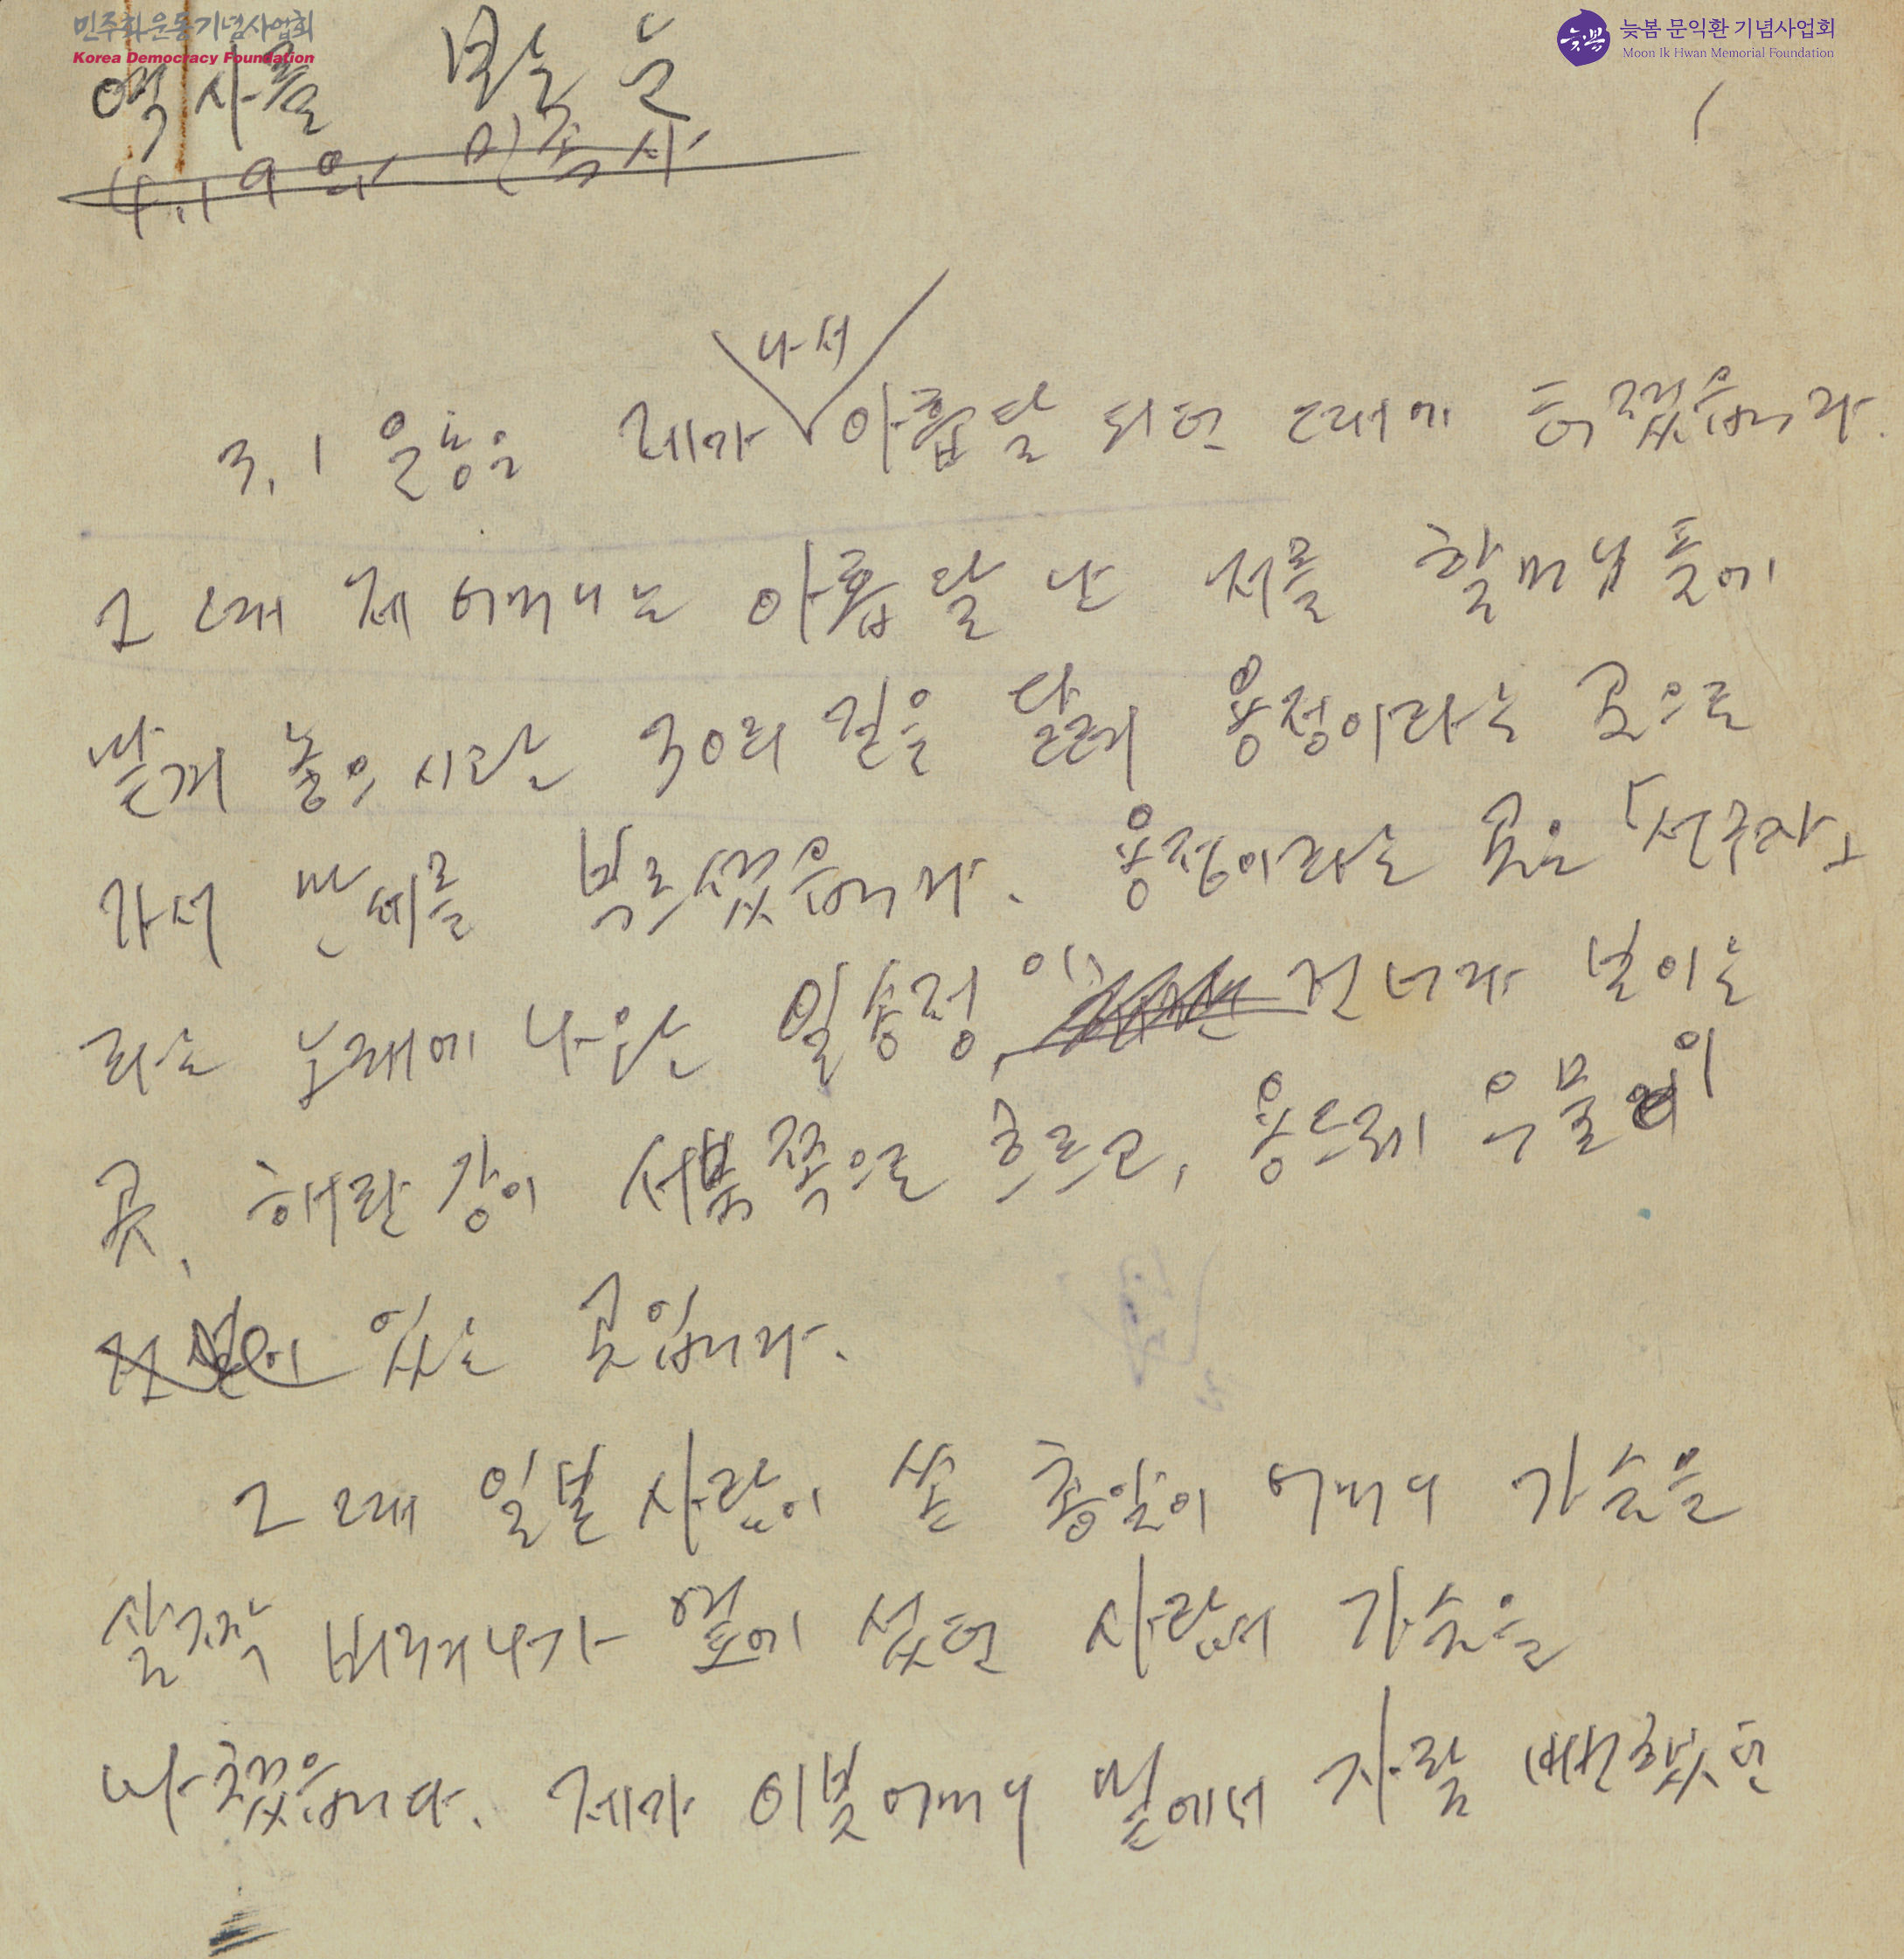 민주화운동기념사업회
Korea Democracy Foundation
늦봄 문익환 기념사업회
Moon Ik Hwan Memorial Foundation
늦봄
역사를 보는 눈
1
4.19와 민족사
나서
3.1 운동은 제가 아홉달 되던 때에 터졌습니다.
그 때 제 어머니는 아홉달 난 저를 할머님 품에
맡겨 놓으시라는 30리 길을 달려 용정이라는 곳으로
가서 만세를 부르셨습니다. 용정이라는 곳은 「선구자」
라는 노래에 나오는 일송정이 건너다 보이는
곳, 해란강이 서북쪽으로 흐르고, 용드레 우물이
있는 곳입니다.
그 때 일본 사람이 쏜 총알이 어머니 가슴을
살짝 비켜나가 옆에 섰던 사람의 가슴을
맞혔습니다. 제가 이붓어머니 밑에서 자랄 뻔했던